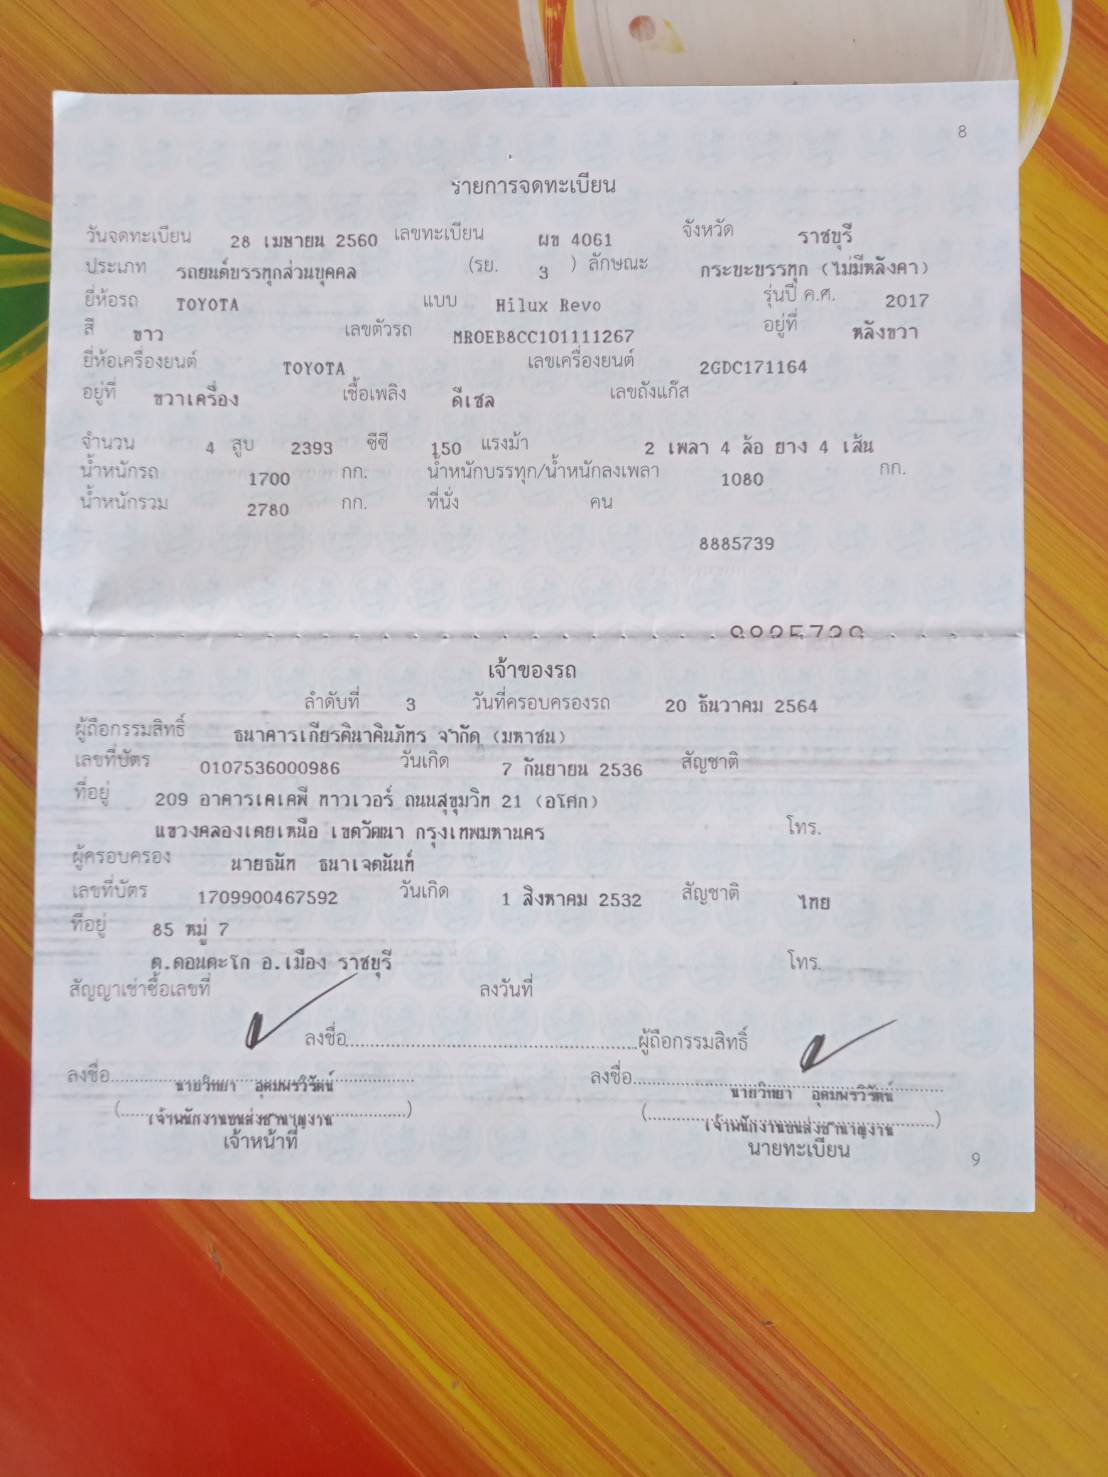 8
รายการจดทะเบียน
วันจดทะเบียน 28 เมษายน 2560 เลขทะเบียน ผข 4061 จังหวัด ราชบุรี
ประเภท รถยนต์บรรทุกส่วนบุคคล (รย. 3 ) ลักษณะ กระบะบรรทุก (ไม่มีหลังคา)
ยี่ห้อรถ TOYOTA แบบ Hilux Revo รุ่นปี ค.ศ. 2017
สี ขาว เลขตัวรถ MR0EB8CC101111267 อยู่ที่ หลังขวา
ยี่ห้อเครื่องยนต์ TOYOTA เลขเครื่องยนต์ 2GDC171164
อยู่ที่ ขวาเครื่อง เชื้อเพลิง ดีเซล เลขถังแก๊ส
จำนวน 4 สูบ 2393 ซีซี 150 แรงม้า 2 เพลา 4 ล้อ ยาง 4 เส้น
น้ำหนักรถ 1700 กก. น้ำหนักบรรทุก/น้ำหนักลงเพลา 1080 กก.
น้ำหนักรวม 2780 กก. ที่นั่ง คน
8885739
เจ้าของรถ
ลำดับที่ 3 วันที่ครอบครองรถ 20 ธันวาคม 2564
ผู้ถือกรรมสิทธิ์ ธนาคารเกียรตินาคินภัทร จำกัด (มหาชน)
เลขที่บัตร 0107536000986 วันเกิด 7 กันยายน 2536 สัญชาติ
ที่อยู่ 209 อาคารเคเคพี ทาวเวอร์ ถนนสุขุมวิท 21 (อโศก)
แขวงคลองเตยเหนือ เขตวัฒนา กรุงเทพมหานคร โทร.
ผู้ครอบครอง นายธนัท ธนาเจตนันท์
เลขที่บัตร 1709900467592 วันเกิด 1 สิงหาคม 2532 สัญชาติ ไทย
ที่อยู่ 85 หมู่ 7
ต.ดอนตะโก อ.เมือง ราชบุรี โทร.
สัญญาเช่าซื้อเลขที่ ลงวันที่
ลงชื่อ........................................ผู้ถือกรรมสิทธิ์
ลงชื่อ........................................ ลงชื่อ........................................
นายวิทยา อุดมพรวิรัตน์ นายวิทยา อุดมพรวิรัตน์
(เจ้าพนักงานขนส่งชำนาญงาน) (เจ้าพนักงานขนส่งชำนาญงาน)
เจ้าหน้าที่ นายทะเบียน
9